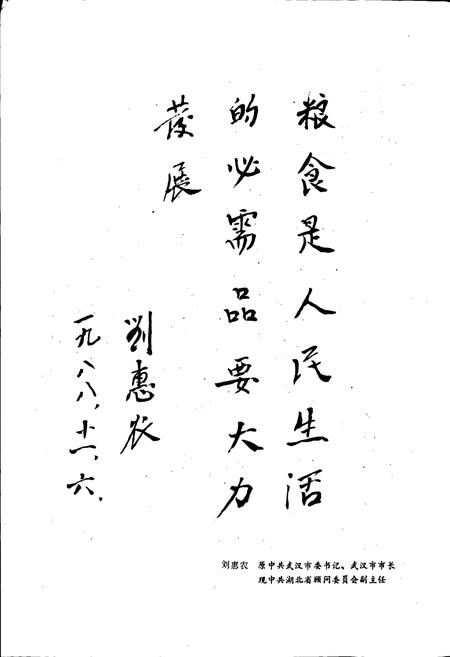 粮食是人民生活
的必需品要大力
发展
劉惠农
一九八八、十一、六、
刘惠农 原中共武汉市委书记、武汉市市长
现中共湖北省顾问委员会副主任